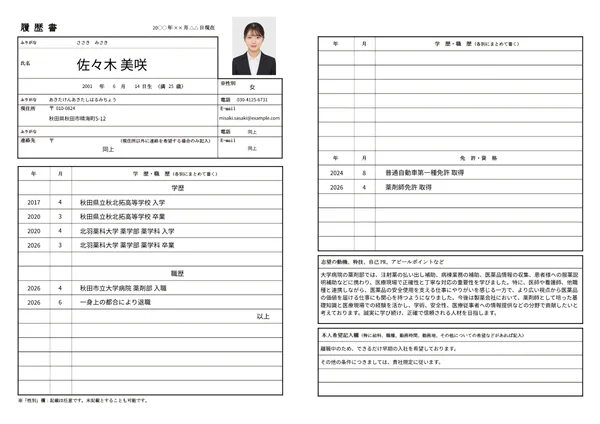 履歴書
20○○年××月△△日現在
ふりがな ささき みさき
氏名 佐々木 美咲
2001 年 6 月 14 日生 (満 25 歳)
※性別
女
ふりがな あきたけんあきたしはるみちょう
電話 090-4125-6731
現住所 〒010-0824
秋田県秋田市晴海町5-12
E-mail
misaki.sasaki@example.com
ふりがな
電話 同上
連絡先 〒 (現住所以外に連絡を希望する場合のみ記入)
同上
E-mail
同上
年 月 学 歴・職 歴 (各別にまとめて書く)
学歴
2017 4 秋田県立秋北拓高等学校 入学
2020 3 秋田県立秋北拓高等学校 卒業
2020 4 北羽薬科大学 薬学部 薬学科 入学
2026 3 北羽薬科大学 薬学部 薬学科 卒業
職歴
2026 4 秋田市立大学病院 薬剤部 入職
2026 6 一身上の都合により退職
以上
※「性別」欄:記載は任意です。未記載とすることも可能です。
年 月 学 歴・職 歴 (各別にまとめて書く)
年 月 免 許・資 格
2024 8 普通自動車第一種免許 取得
2026 4 薬剤師免許 取得
志望の動機、特技、自己PR、アピールポイントなど
大学病院の薬剤部では、注射薬の払い出し補助、病棟業務の補助、医薬品情報の収集、患者様への服薬説
明補助などに携わり、医療現場で正確性と丁寧な対応の重要性を学びました。特に、医師や看護師、他職
種と連携しながら、医薬品の安全使用を支える仕事にやりがいを感じる一方で、より広い視点から医薬品
の価値を届ける仕事にも関心を持つようになりました。今後は製薬会社において、薬剤師として培った基
礎知識と医療現場での経験を活かし、学術、安全性、医療従事者への情報提供などの分野で貢献したいと
考えております。誠実に学び続け、正確で信頼される人材を目指します。
本人希望記入欄 (特に給料、職種、勤務時間、勤務地、その他についての希望などがあれば記入)
離職中のため、できるだけ早期の入社を希望しております。
その他の条件につきましては、貴社規定に従います。